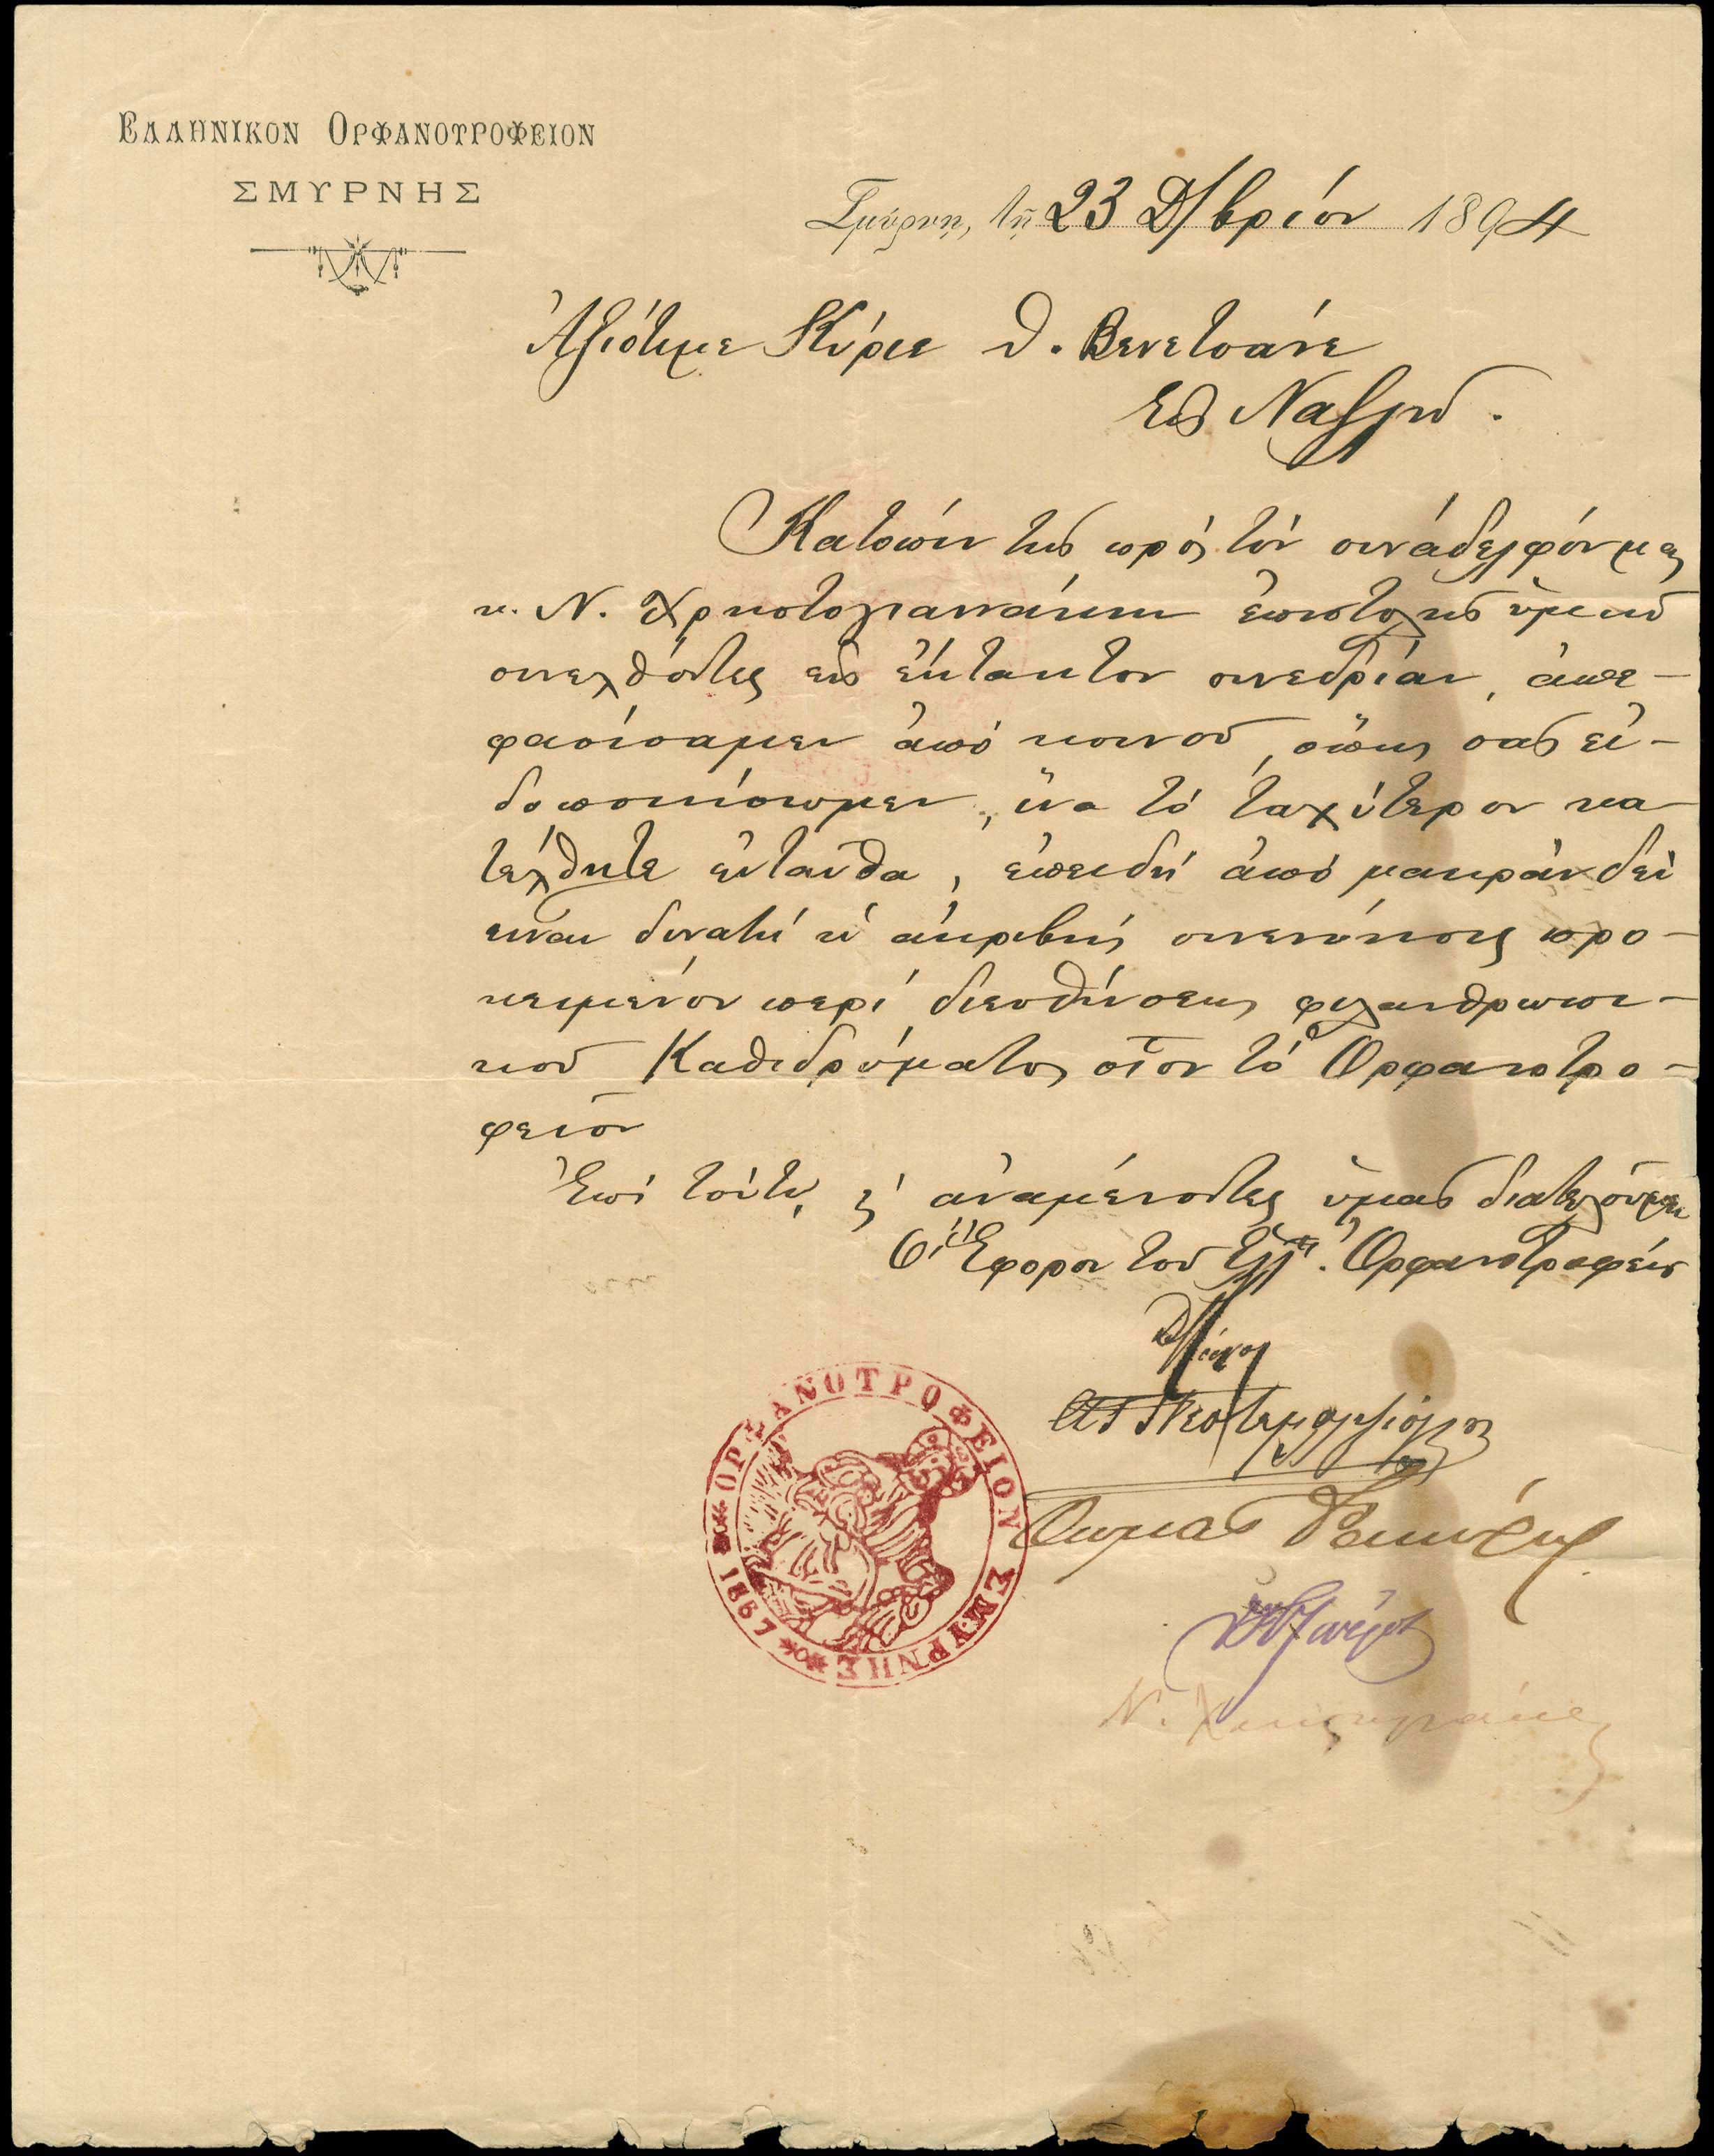 ΕΛΛΗΝΙΚΟΝ ΟΡΦΑΝΟΤΡΟΦΕΙΟΝ
ΣΜΥΡΝΗΣ
Σμύρνη, τῇ 23 Δ/βρίου 1894
Ἀξιότιμε Κύριε Θ. Βενετσάνε
Εἰς Ναζλί.
Κατόπιν τῆς πρὸς τὸν συνάδελφόν μας
κ. Ν. Χρηστογιαννάκην ἐπιστολῆς ὑμῶν
συνελθόντες εἰς ἔκτακτον συνεδρίαν, ἀπε-
φασίσαμεν ἀπὸ κοινοῦ, ὅπως σας εἰ-
δοποιήσωμεν, ἵνα τὸ ταχύτερον κα-
τέλθητε ἐνταῦθα, ἐπειδὴ ἀπὸ μακρὰν δὲν
εἶναι δυνατὴ ἡ ἀκριβὴς συνεννόησις προ-
κειμένου περὶ διευθύνσεως φιλανθρωπι-
κοῦ Καθιδρύματος οἷον τὸ Ὀρφανοτρο-
φεῖον
Ἐπὶ τούτῳ, ϗ ἀναμένοντες ὑμᾶς διατελοῦμεν
Οἱ Ἔφοροι τοῦ Ἑλλ. Ὀρφανοτροφείου
Θωμᾶς
Ν.
ΟΡΦΑΝΟΤΡΟΦΕΙΟΝ ΣΜΥΡΝΗΣ
1867